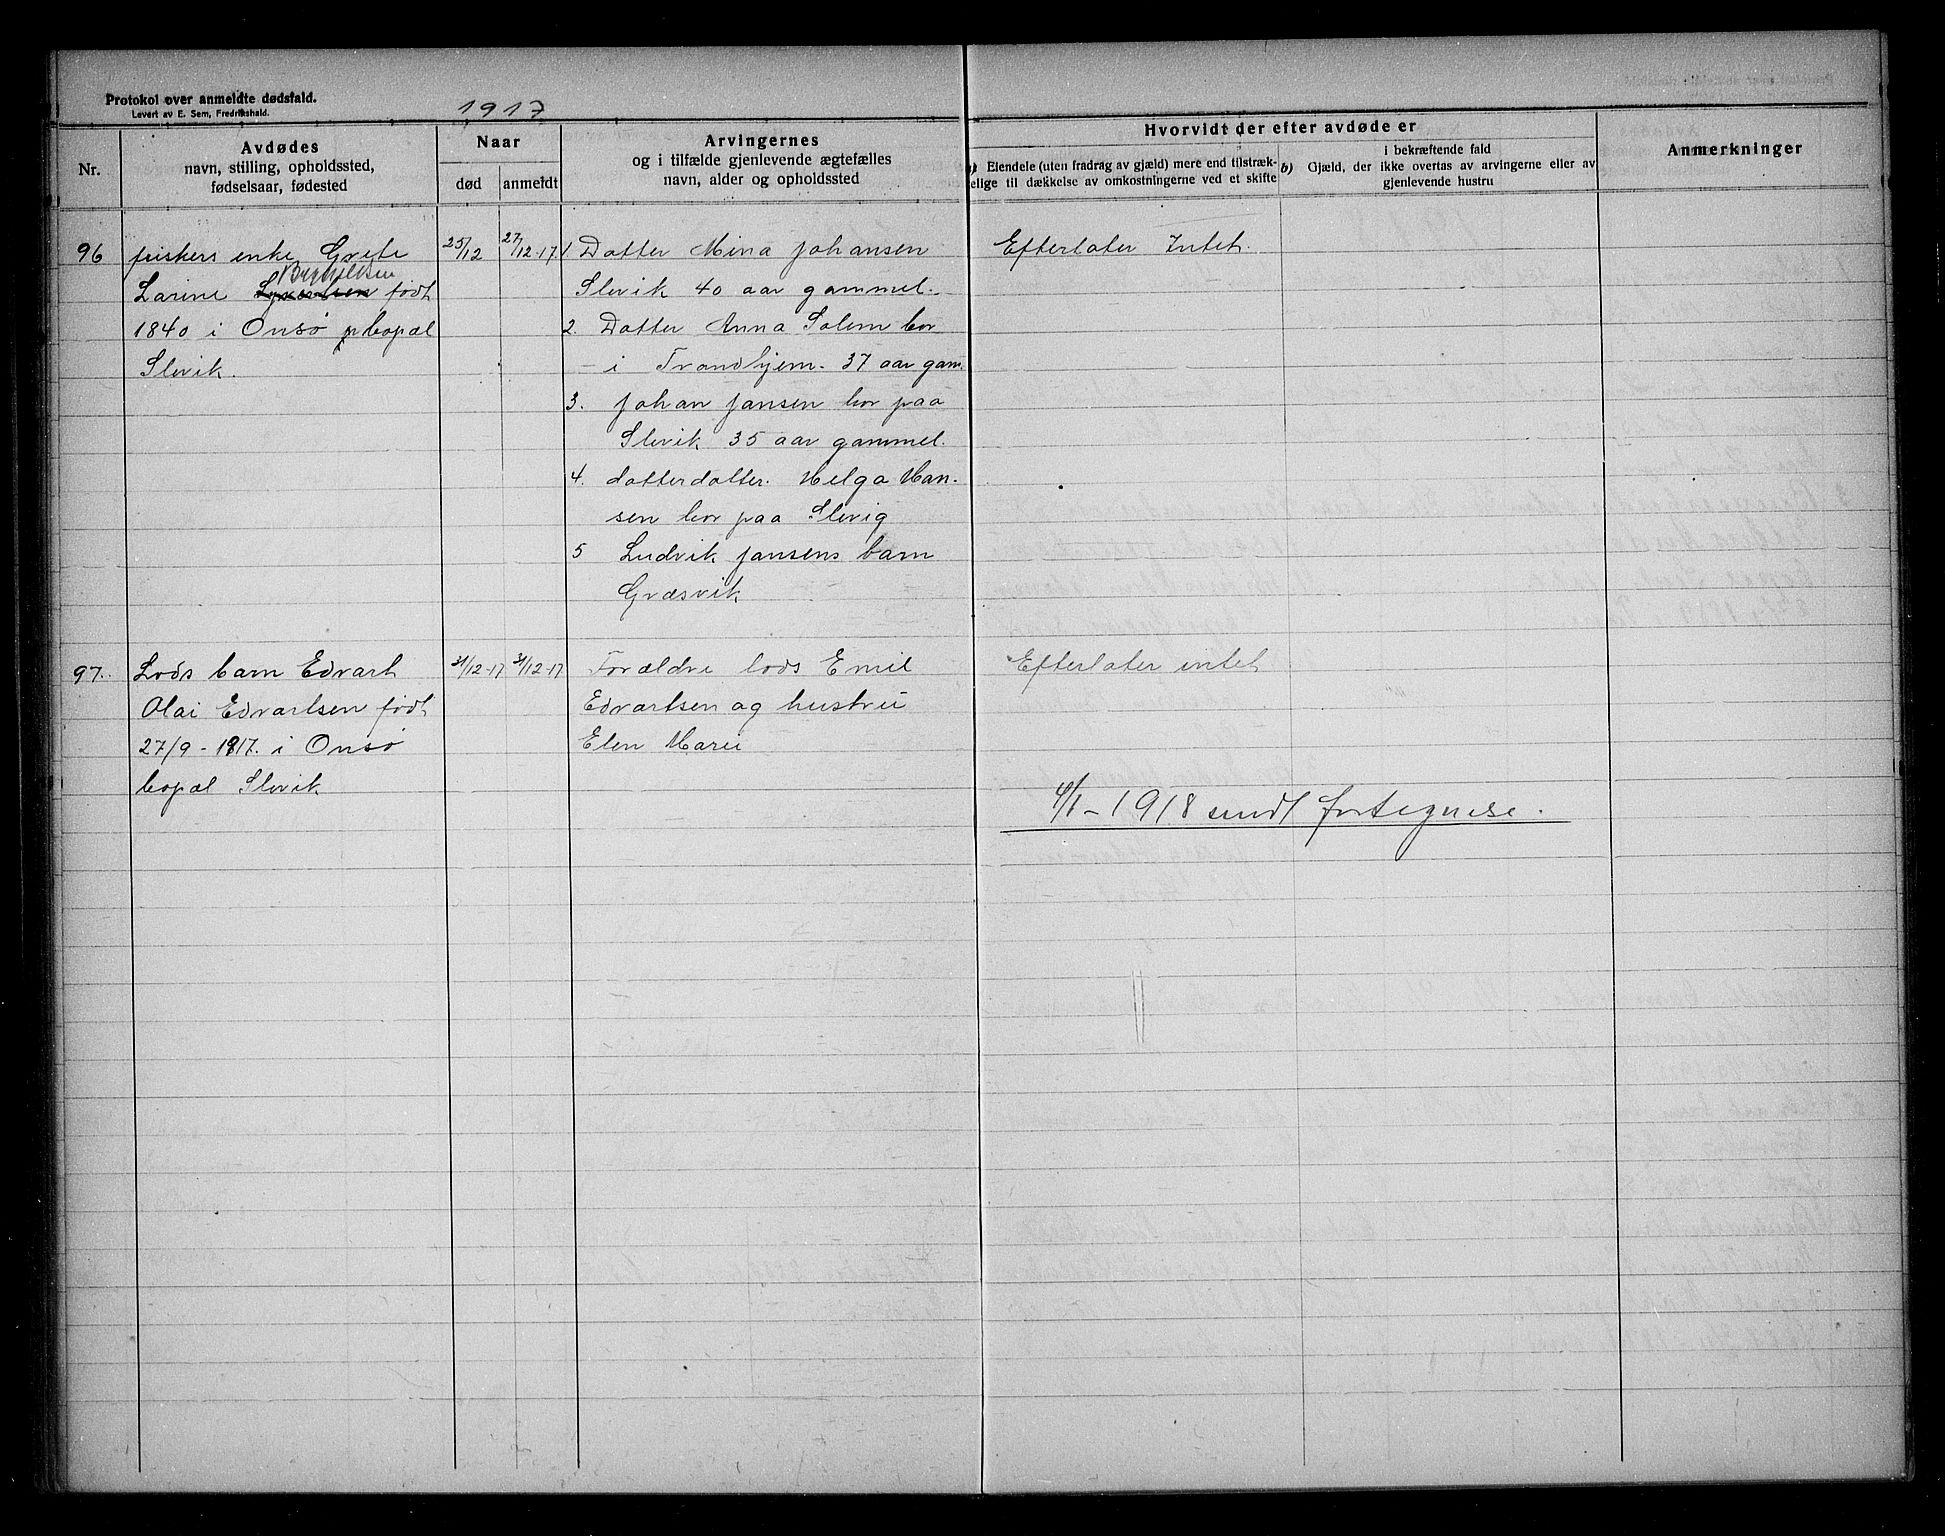 Protokol over anmeldte dødsfald.
Levert av E. Sem, Fredrikshald.
1917
Nr.
Avdødes
navn, stilling, opholdssted,
fødselsaar, fødested
Naar
død
anmeldt
Arvingernes
og i tilfælde gjenlevende ægtefælles
navn, alder og opholdssted
Hvorvidt der efter avdøde er
a) Eiendele (uten fradrag av gjæld) mere end tilstræk-
kelige til dækkelse av omkostningerne ved et skifte
i bekræftende fald
b) Gjæld, der ikke overtas av arvingerne eller av
gjenlevende hustru
Anmerkninger
96
fiskers enke Grete
Larine født
1840 i Onsø bopæl
Slevik.
25/12
27/12-17.
1 Datter Mina Johansen
Slevik 40 aar gammel.
2. Datter Anna Solem bor
i Trondhjem. 37 aar gam
3. Johan Jansen bor paa
Slevik 35 aar gammel.
4. datterdatter. Helga Han-
sen bor paa Slevig
5 Ludvik Jansens barn
Græsvik
Efterlater Intet.
97.
Lods barn Edvart
Olai Edvartsen født
27/9-1917. i Onsø
bopæl Slevik
31/12-17
31/12-17
Forældre lods Emil
Edvartsen og hustru
Elen Marie
Efterlater intet
4/1-1918 sendt fortegnelse.